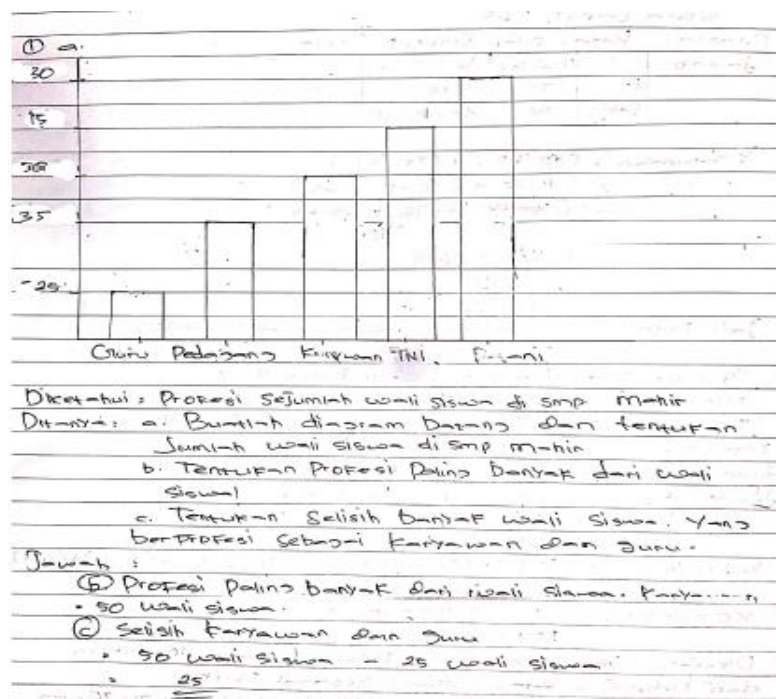 ① a.
30
15
50
35
25
Guru Pedagang Karyawan TNI. Petani
Diketahui : Profesi sejumlah wali siswa di smp mahir
Ditanya : a. Buatlah diagram batang dan tentukan
Jumlah wali siswa di smp mahir
b. Tentukan Profesi Paling banyak dari wali
siswa!
c. Tentukan Selisih banyak wali siswa. Yang
berprofesi sebagai karyawan dan guru.
Jawab :
ⓑ Profesi Paling banyak dari wali siswa.
• 50 wali siswa.
ⓒ Selisih karyawan dan guru
• 50 wali siswa - 25 wali siswa
• 25